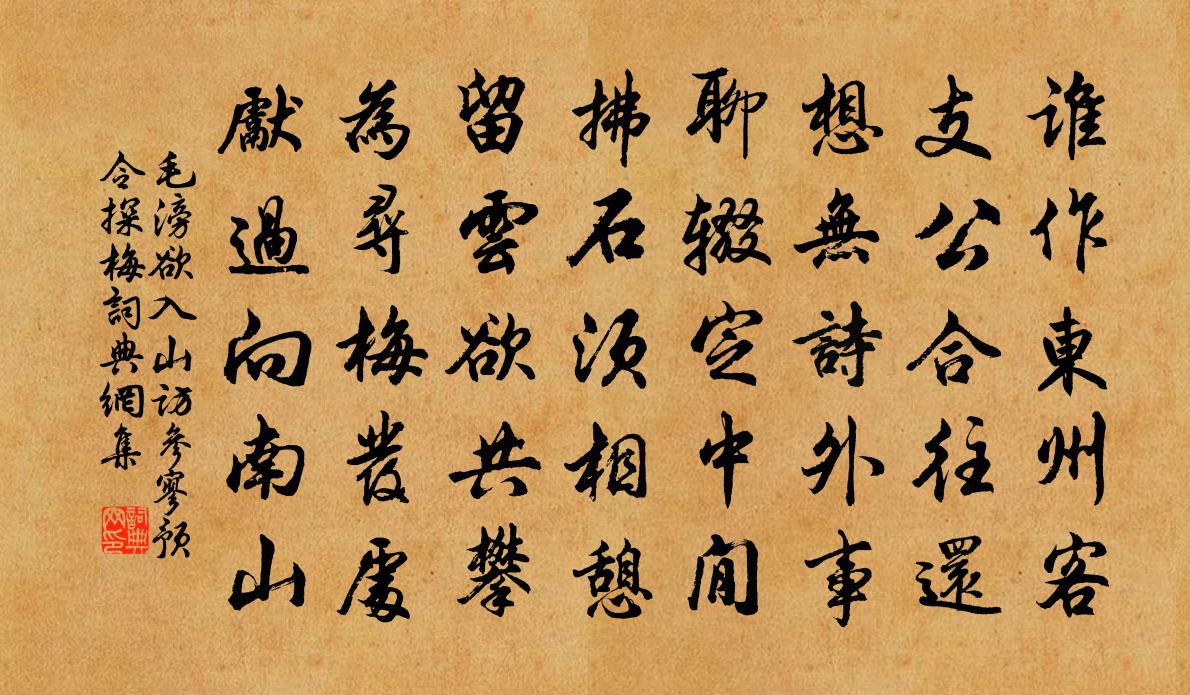 谁作東州客
支公合往還
想無詩外事
聊辍定中閒
拂石须相憩
留雲欲共攀
為尋梅發處
獻過向南山
毛滂欲入山访參寥预
令探梅詞典網集
詞典网印